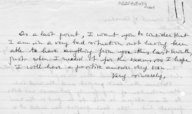 As a last point, I want you to consider that
I am in a very bad situation not having been
able to have anything from you this last month
just when I needed it for the reasons so I hope
I will have a positive answer very soon
Very sincerely,